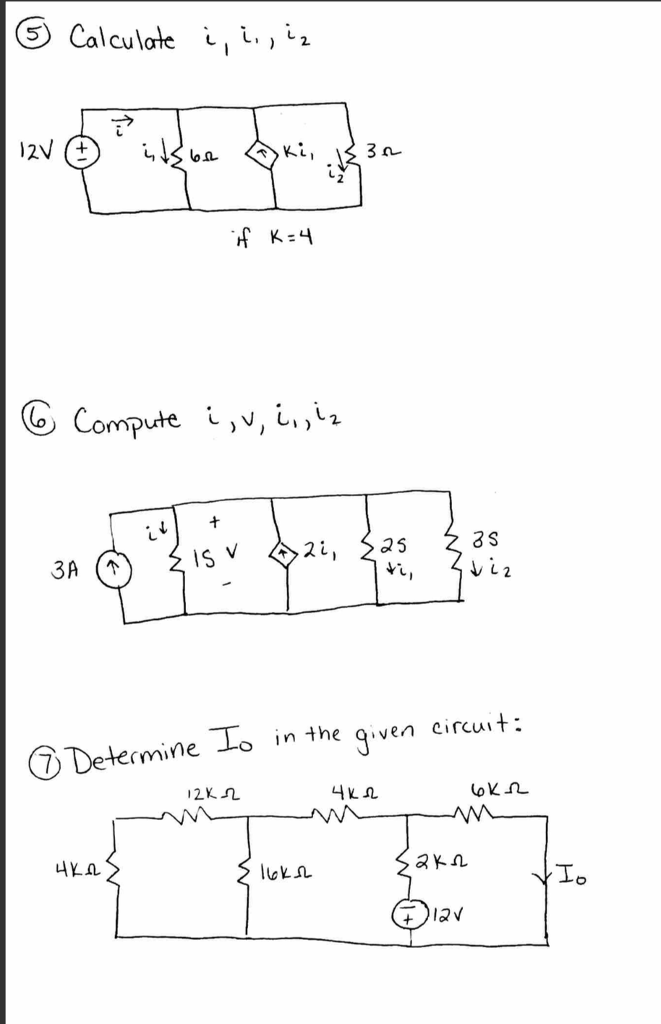 ⑤ Calculate i, i₁, i₂
12V + - i i₁ 6Ω ki₁ i₂ 3Ω
if K=4
⑥ Compute i, v, i₁, i₂
3A i + 1S v - 2i₁ 2S i₁ 3S i₂
⑦ Determine I₀ in the given circuit:
12KΩ 4KΩ 6KΩ
4KΩ 16KΩ 2KΩ I₀
- + 12V